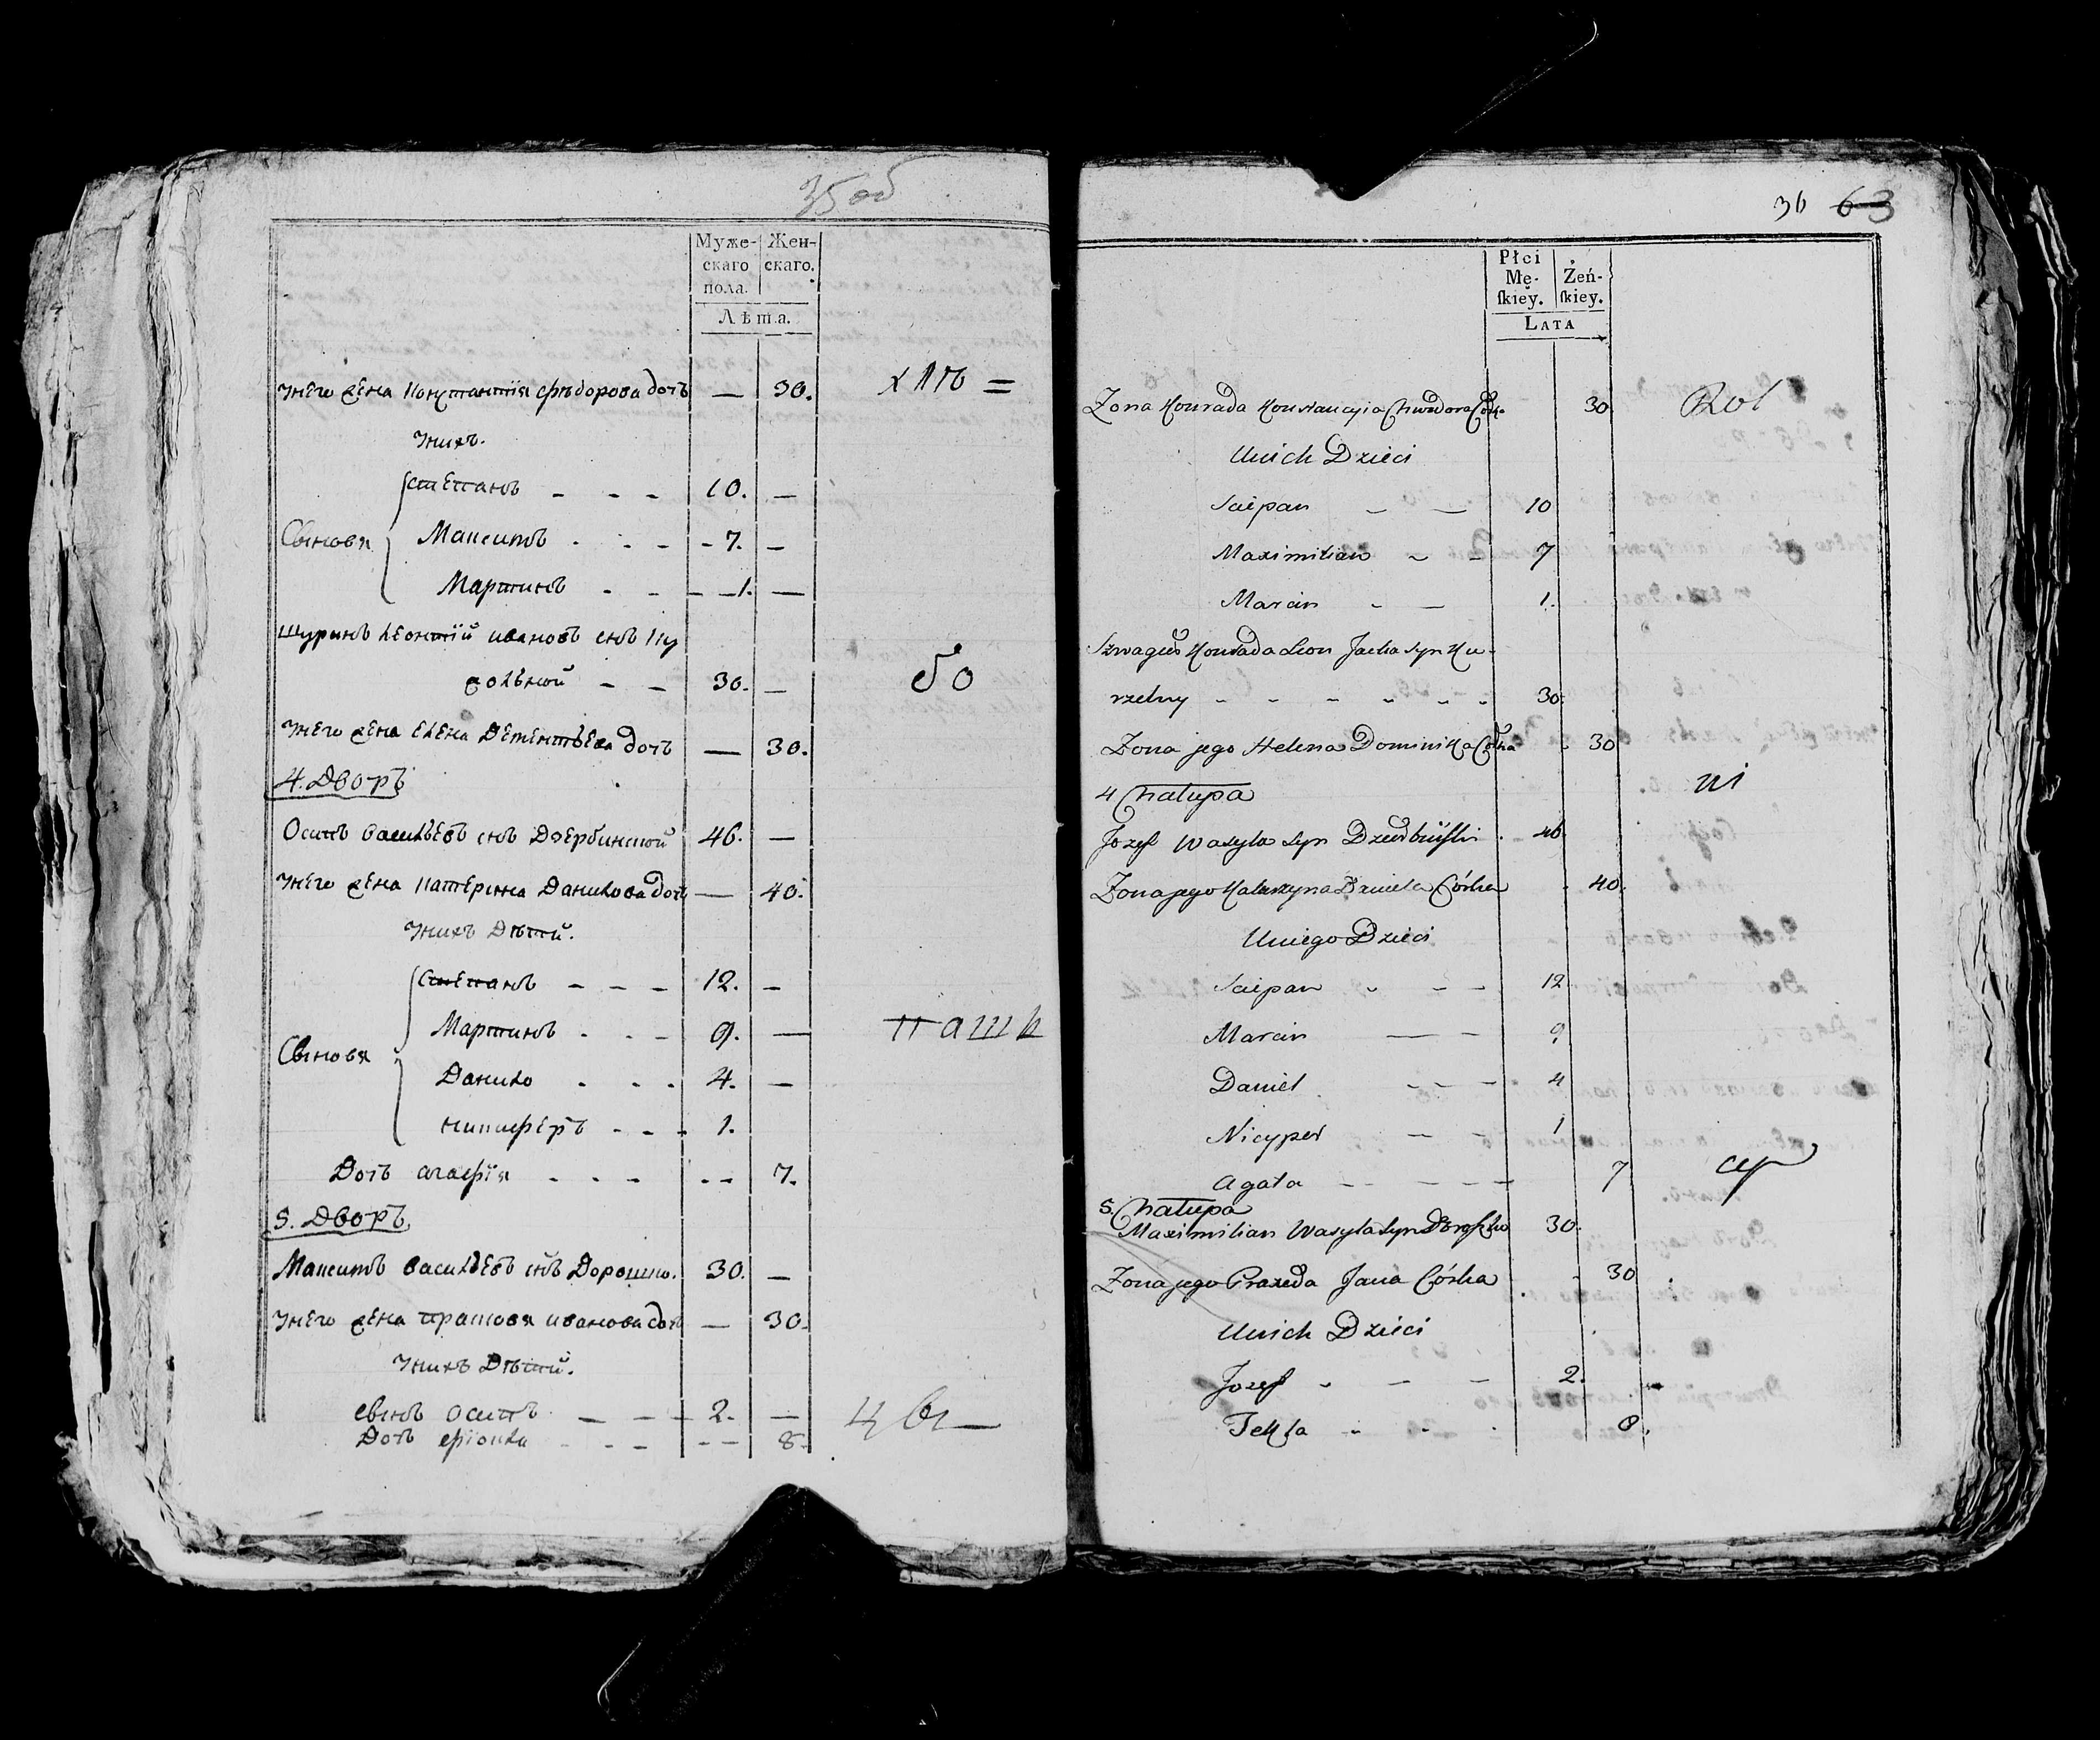 35 об
Муже-
скаго
пола.
Жен-
скаго.
Лѣта.
Унего жена Константія Фѣдорова дочь — 30.
хлѣ =
Унихъ.
Сыновя
Степанъ - - - 10. —
Максимъ - - - 7. —
Мартинъ - - - 1. —
Шуринъ Леонтій Ивановъ снъ Ку
жельной - - 30. —
бо
Унего жена Елена Дементьева дочь — 30.
4. Дворъ
Осипъ Васильевъ снъ Дзербинской 46. —
Унего жена Катерина Данилова дочь — 40.
Унихъ Дѣтй.
Сыновя
Степанъ - - - 12. —
Мартинъ - - - 9. —
паши
Данило - - - 4. —
Никиферъ - - - 1.
Дочь Агафія - - - -- 7.
5. Дворъ
Максимъ Васильевъ снъ Дорошко. 30. —
Унего жена Прасковя Иванова дочь — 30.
Унихъ Дѣтй.
Сынъ Осипъ — — - 2. —
Дочь Фіокла - - - -- 8.
цы—
36 63
Płci
Mę-
ſkiey.
Żeń-
ſkiey.
LATA
Zona Konrada Konstancyia Chwedora Córka 30
Rol
Unich Dzieci
Sciepan - — 10
Maximilian - - 7
Marcin - — 1.
Szwagier Konrada Leon Jacka Syn Ku-
rzelny - - - - - - 30.
Zona jego Helena Dominika Córka - 30
4 Chałupa
ni
Jozef Wasyla Syn Dzerbiński - 46
Zona jego Katarzyna Daniela Córka - 40.
Uniego Dzieci
Sciepan - - - 12
Marcin — — 9
Daniel - - - 4
Nicyper — - 1
Agata - - - - - 7
5. Chałupa
Maximilian Wasyla Syn Doroszko 30.
Zona jego Praxeda Jana Córka - 30
Unich Dzieci
Jozef - — — 2.
Tekla - - - 8.